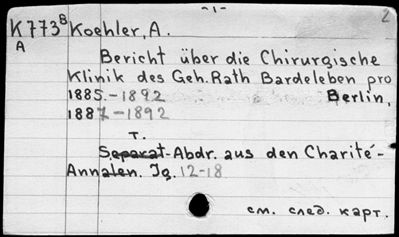 -1-
2
K 773 B Koehler, A.
A
Bericht über die Chirurgische
Klinik des Geh. Rath Bardeleben pro
1885.-1892 Berlin,
1887-1892
T.
Separat-Abdr. aus den Charité-
Annalen. Jg. 12-18
см. след. карт.